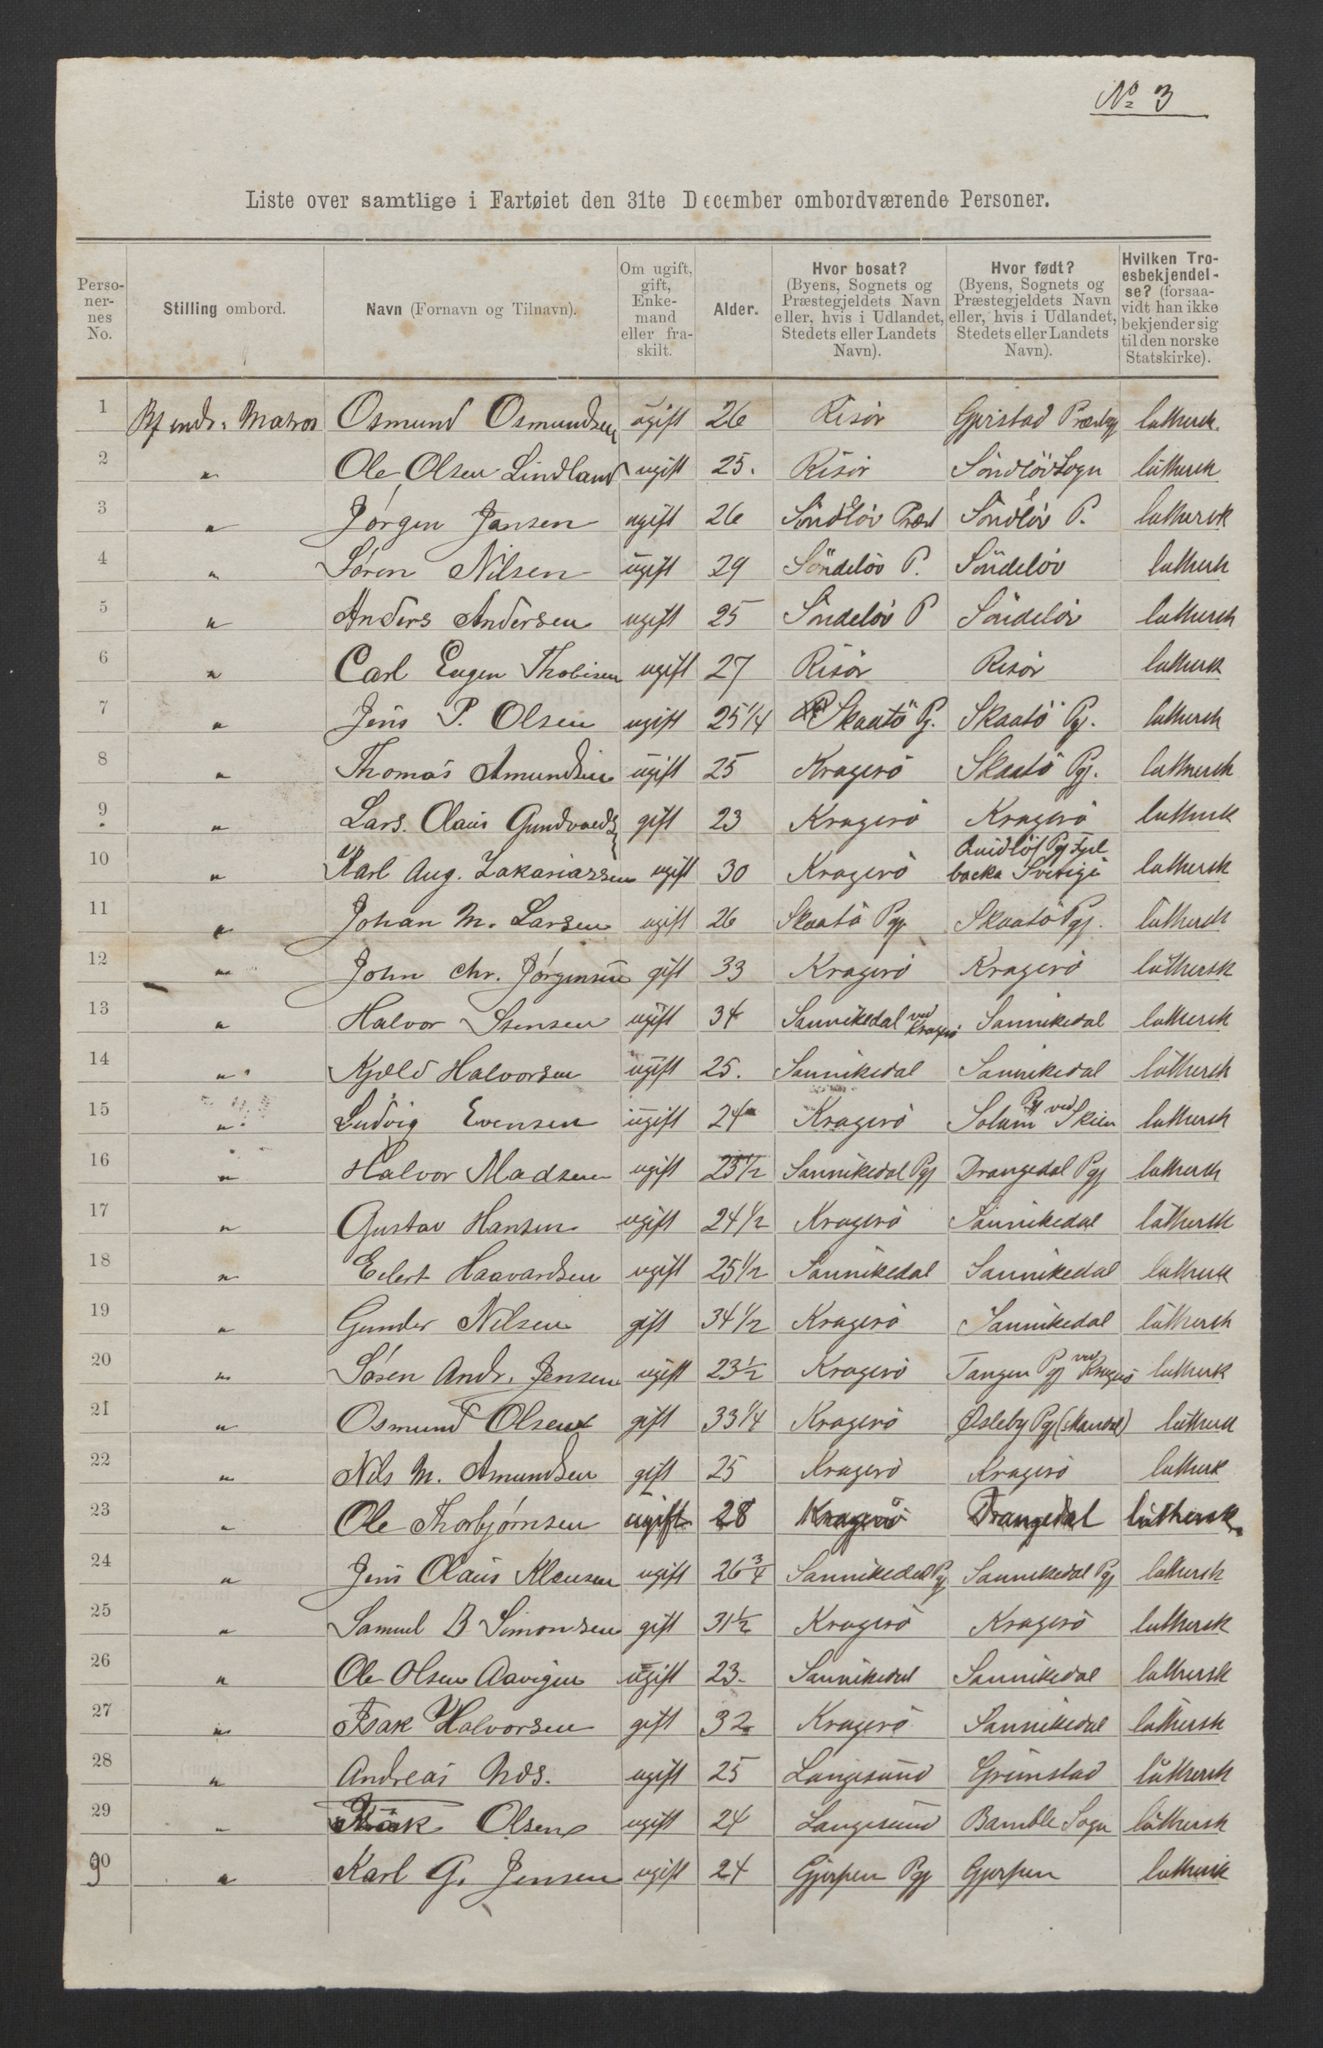 No 3
Liste over samtlige i Fartøiet den 31te December ombordværende Personer.
Perso-
ner-
nes
No.
Stilling ombord.
Navn (Fornavn og Tilnavn).
Om ugift,
gift,
Enke-
mand
eller fra-
skilt.
Alder.
Hvor bosat?
(Byens, Sognets og
Præstegjeldets Navn
eller, hvis i Udlandet,
Stedets eller Landets
Navn).
Hvor født?
(Byens, Sognets og
Præstegjeldets Navn
eller, hvis i Udlandet,
Stedets eller Landets
Navn).
Hvilken Tro-
esbekjendel-
se? (forsaa-
vidt han ikke
bekjender sig
til den norske
Statskirke).
1 Matros Osmund Osmundsen ugift 26 Risör Gjerstad luthersk.
2 " Ole Olsen Lindland ugift 25. Risör Söndlöv Sogn luthersk
3 " Jørgen Jansen ugift 26 Söndelöv Præst Söndelöv P. luthersk
4 " Søren Nilsen ugift 29 Söndelöv P. Söndelöv luthersk
5 " Anders Andersen ugift 25 Söndelöv P Söndelöv luthersk
6 " Carl Eugen Thobisen ugift 27 Risör Risör luthersk
7 " Jens P. Olsen ugift 25 1/4 Skaatö Pj. Skaatö Pgj. luthersk
8 " Thomas Amundsen ugift 25 Kragerö Skaatö Pgj. luthersk
9 " Lars. Claus Gundvalds gift 23 Kragerö Kragerö luthersk
10 " Karl Aug. Zakariassen ugift 30 Kragerö Quidlöf Pgj Fjel
backa Sverige luthersk
11 " Johan M. Larsen ugift 26 Skaatö Pgj Skaatö Pgj. luthersk
12 " John Chr. Jørgensen gift 33 Kragerö Kragerö luthersk
13 " Halvor Stensen ugift 34 Sannikedal ved Kragerö Sannikedal luthersk
14 " Kjæld Halvorsen ugift 25. Sannikedal Sannikedal luthersk
15 " Ludvig Evensen ugift 24 Kragerö Solum Pgj ved Skien luthersk
16 " Halvor Madsen ugift 25 1/2 Sannikedal Pgj Drangedal Pgj luthersk
17 " Gustav Hansen ugift 24 1/2 Kragerö Sannikedal luthersk
18 " Eilert Haavardsen ugift 25 1/2 Sannikedal Sannikedal luthersk
19 " Gunder Nilsen gift 34 1/2 Kragerö Sannikedal luthersk
20 " Søren Andr. Jensen ugift 23 1/2 Kragerö Tangen Pgj ved Kragerö luthersk
21 " Osmund Olsen gift 33 1/4 Kragerö Øsleby Pgj (Mandal) luthersk
22 " Nils M. Amundsen gift 25 Kragerö Kragerö luthersk
23 " Ole Thorbjørnsen ugift 28 Kragerö Drangedal luthersk.
24 " Jens Claus Klausen ugift 26 3/4 Sannikedal Pgj Sannikedal Pgj luthersk
25 " Samuel B Simonsen gift 31 1/2 Kragerö Kragerö luthersk
26 " Ole Olsen Aavigen ugift 23. Sannikedal Sannikedal luthersk
27 " Isak Halvorsen gift 32 Kragerö Sannikedal luthersk
28 " Andreas Nds. ugift 25 Langesund Grimstad luthersk
29 " Isak Olsen ugift 24 Langesund Bamble Sogn luthersk
30 " Karl G. Jensen ugift 24 Gjerpen Pgj Gjerpen luthersk